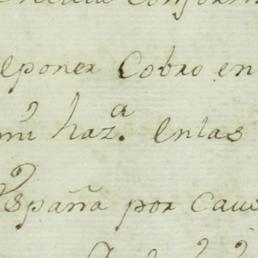 eponer Cobro en
mi haz.ᵃ enlas
España por Cau